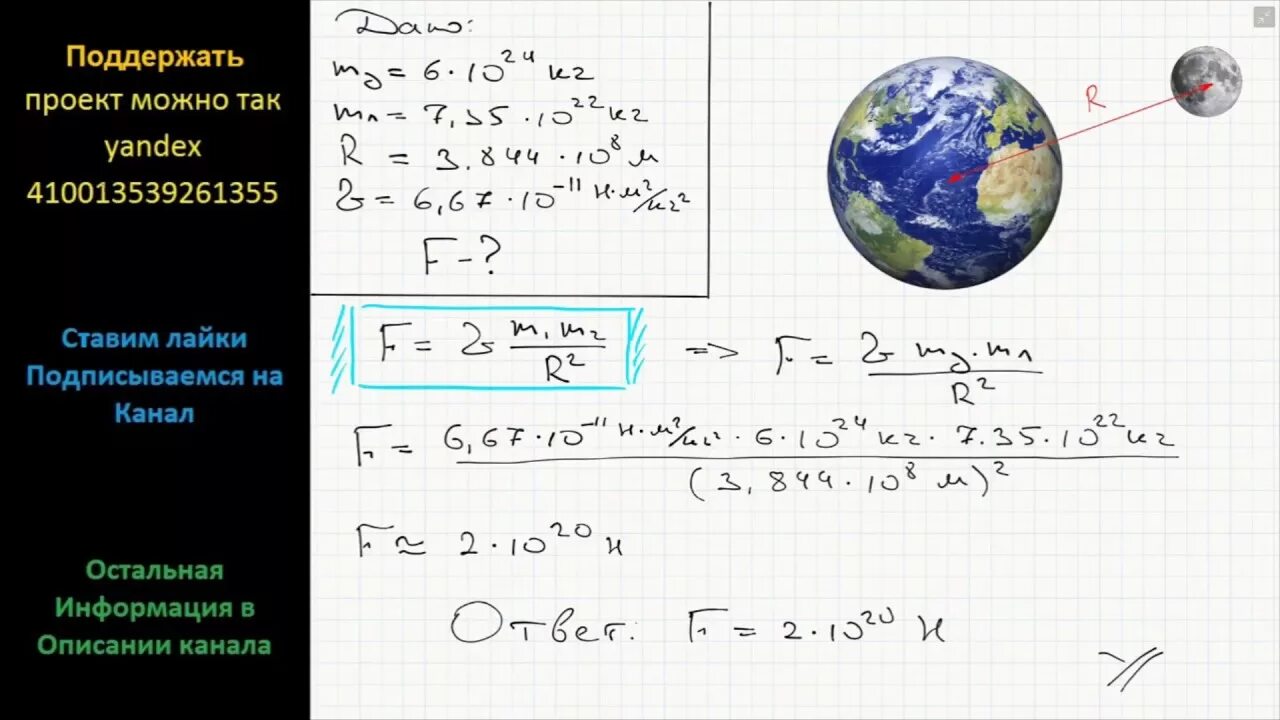 Поддержать
проект можно так
yandex
410013539261355
Ставим лайки
Подписываемся на
Канал
Остальная
Информация в
Описании канала
Дано:
m₃ = 6·10²⁴ кг
mл = 7,35·10²² кг
R = 3,844·10⁸ м
G = 6,67·10⁻¹¹ Н·м²/кг²
F - ?
R
F = G m₁m₂/R² => F = G m₃·mл/R²
F = 6,67·10⁻¹¹ Н·м²/кг² · 6·10²⁴ кг · 7.35·10²² кг
(3,844·10⁸ м)²
F ≈ 2·10²⁰ Н
Ответ: F = 2·10²⁰ Н